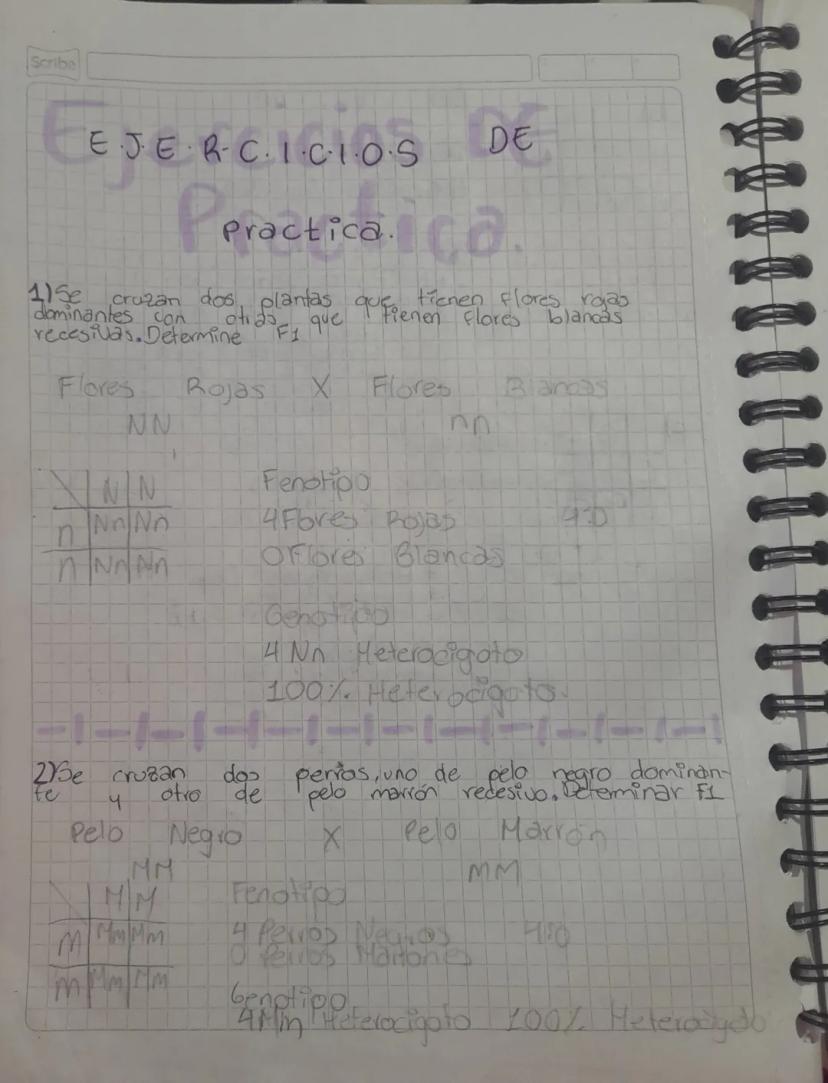 Scribe
Ejercicios DE
E.J.E.R.C.I.C.I.O.S DE
Practica.
Practica.
1) Se cruzan dos plantas que tienen flores rojas
dominantes con otras que tienen flores blancas
recesivas. Determine F1
Flores Rojas X Flores Blancas
NN nn
N N
n Nn Nn
n Nn Nn
Fenotipo
4 Flores Rojas 4:0
0 Flores Blancas
Genotipo
4 Nn Heterocigoto
100% Heterocigoto.
2) Se cruzan dos perros, uno de pelo negro dominan-
te y otro de pelo marrón recesivo. Determinar F1
Pelo Negro X Pelo Marrón
MM mm
M M
m Mm Mm
m Mm Mm
Fenotipo
4 Perros Negros 4:0
0 Perros Marrones
Genotipo
4 Mm Heterocigoto 100% Heterocigoto